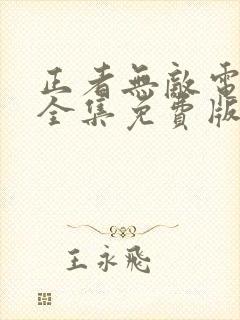 正者無敵電
全集免費版
王永飛